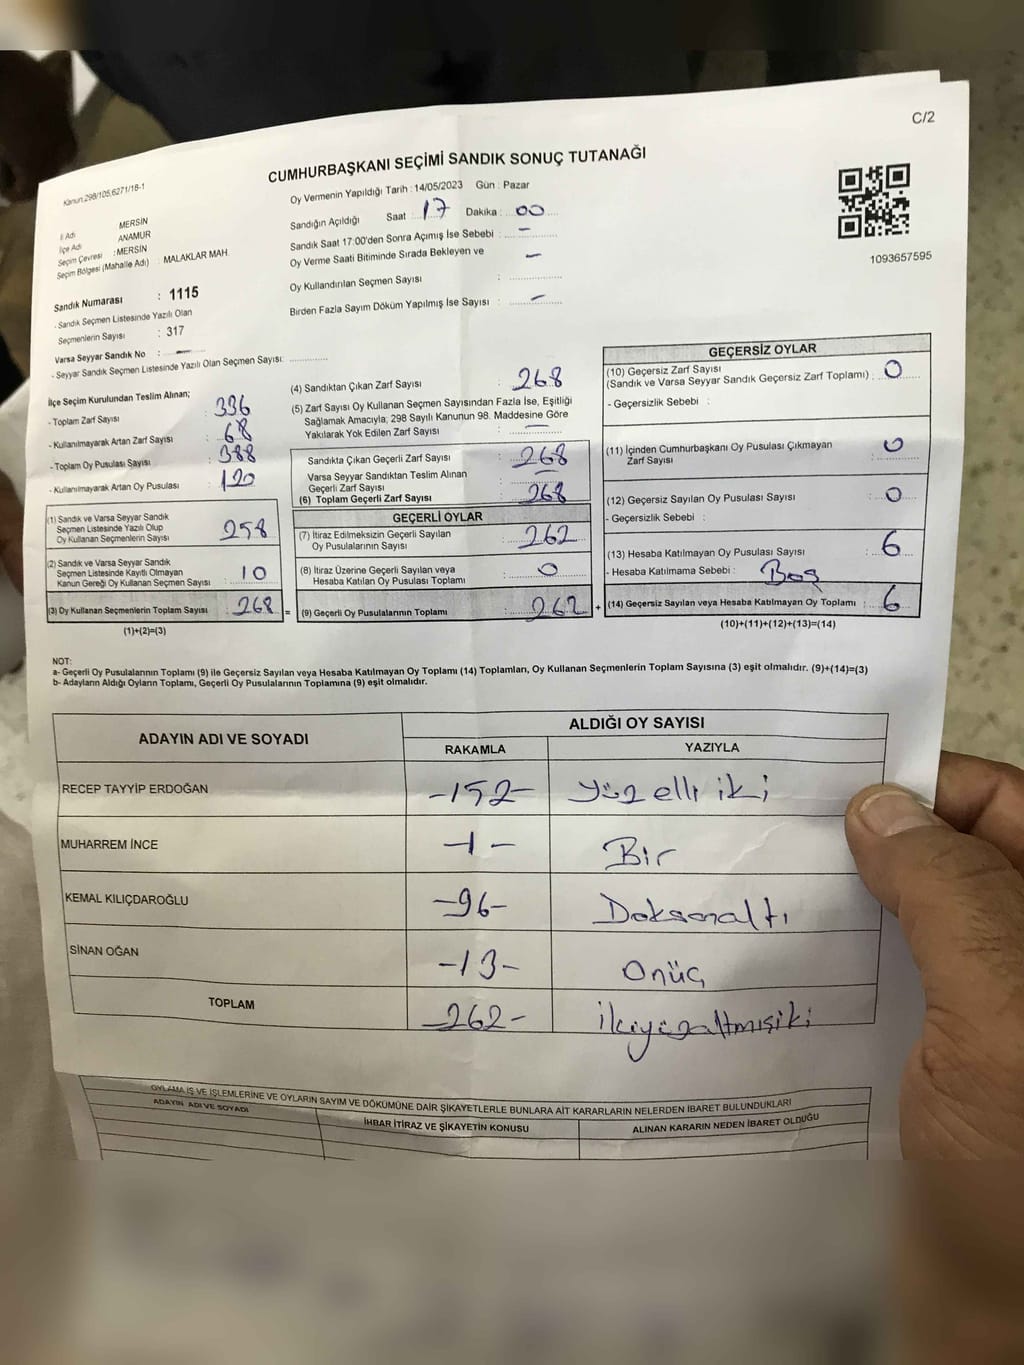 C/2
CUMHURBAŞKANI SEÇİMİ SANDIK SONUÇ TUTANAĞI
Kanun:298/105,6271/16-1
Oy Vermenin Yapıldığı Tarih : 14/05/2023 Gün : Pazar
Sandığın Açıldığı Saat : 17 Dakika : 00
Sandık Saat 17:00'den Sonra Açımış İse Sebebi : -
Oy Verme Saati Bitiminde Sırada Bekleyen ve -
Oy Kullandırılan Seçmen Sayısı :
Birden Fazla Sayım Döküm Yapılmış İse Sayısı : -
1093657595
İl Adı MERSİN
İlçe Adı ANAMUR
Seçim Çevresi : MERSİN
Seçim Bölgesi (Mahalle Adı) : MALAKLAR MAH.
Sandık Numarası : 1115
- Sandık Seçmen Listesinde Yazılı Olan
Seçmenlerin Sayısı : 317
Varsa Seyyar Sandık No : -
- Seyyar Sandık Seçmen Listesinde Yazılı Olan Seçmen Sayısı:
İlçe Seçim Kurulundan Teslim Alınan;
- Toplam Zarf Sayısı : 336
- Kullanılmayarak Artan Zarf Sayısı : 68
- Toplam Oy Pusulası Sayısı : 388
- Kullanılmayarak Artan Oy Pusulası : 120
(1) Sandık ve Varsa Seyyar Sandık
Seçmen Listesinde Yazılı Olup
Oy Kullanan Seçmenlerin Sayısı : 258
(2) Sandık ve Varsa Seyyar Sandık
Seçmen Listesinde Kayıtlı Olmayan
Kanun Gereği Oy Kullanan Seçmen Sayısı : 10
(3) Oy Kullanan Seçmenlerin Toplam Sayısı : 268 =
(1)+(2)=(3)
(4) Sandıktan Çıkan Zarf Sayısı : 268
(5) Zarf Sayısı Oy Kullanan Seçmen Sayısından Fazla İse, Eşitliği
Sağlamak Amacıyla, 298 Sayılı Kanunun 98. Maddesine Göre
Yakılarak Yok Edilen Zarf Sayısı : -
Sandıkta Çıkan Geçerli Zarf Sayısı : 268
Varsa Seyyar Sandıktan Teslim Alınan
Geçerli Zarf Sayısı : -
(6) Toplam Geçerli Zarf Sayısı : 268
GEÇERLİ OYLAR
(7) İtiraz Edilmeksizin Geçerli Sayılan
Oy Pusulalarının Sayısı : 262
(8) İtiraz Üzerine Geçerli Sayılan veya
Hesaba Katılan Oy Pusulası Toplamı : 0
(9) Geçerli Oy Pusulalarının Toplamı : 262 +
GEÇERSİZ OYLAR
(10) Geçersiz Zarf Sayısı
(Sandık ve Varsa Seyyar Sandık Geçersiz Zarf Toplamı) : 0
- Geçersizlik Sebebi :
(11) İçinden Cumhurbaşkanı Oy Pusulası Çıkmayan
Zarf Sayısı : 0
(12) Geçersiz Sayılan Oy Pusulası Sayısı : 0
- Geçersizlik Sebebi :
(13) Hesaba Katılmayan Oy Pusulası Sayısı : 6
- Hesaba Katılmama Sebebi : Boş
(14) Geçersiz Sayılan veya Hesaba Katılmayan Oy Toplamı : 6
(10)+(11)+(12)+(13)=(14)
NOT:
a- Geçerli Oy Pusulalarının Toplamı (9) ile Geçersiz Sayılan veya Hesaba Katılmayan Oy Toplamı (14) Toplamları, Oy Kullanan Seçmenlerin Toplam Sayısına (3) eşit olmalıdır. (9)+(14)=(3)
b- Adayların Aldığı Oyların Toplamı, Geçerli Oy Pusulalarının Toplamına (9) eşit olmalıdır.
ADAYIN ADI VE SOYADI ALDIĞI OY SAYISI
RAKAMLA YAZIYLA
RECEP TAYYİP ERDOĞAN -152- Yüz elli iki
MUHARREM İNCE -1- Bir
KEMAL KILIÇDAROĞLU -96- Doksanaltı
SİNAN OĞAN -13- Onüç
TOPLAM -262- ikiyüzaltmışiki
OYLAMA İŞ VE İŞLEMLERİNE VE OYLARIN SAYIM VE DÖKÜMÜNE DAİR ŞİKAYETLERLE BUNLARA AİT KARARLARIN NELERDEN İBARET BULUNDUKLARI
ADAYIN ADI VE SOYADI İHBAR İTİRAZ VE ŞİKAYETİN KONUSU ALINAN KARARIN NEDEN İBARET OLDUĞU